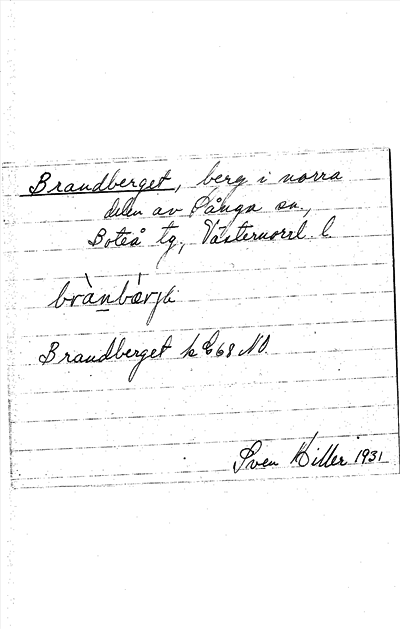 Brandberget, berg i norra
delen av Sånga sn,
Boteå tg, Västernorrl. l.
brànbárjə
Brandberget k E 68 NO.
Sven Hiller 1931